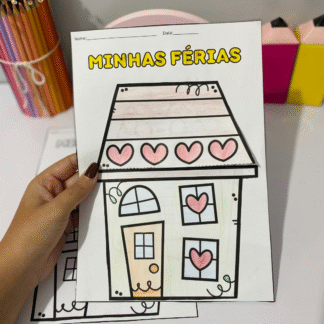 Nome: Data:
MINHAS FÉRIAS